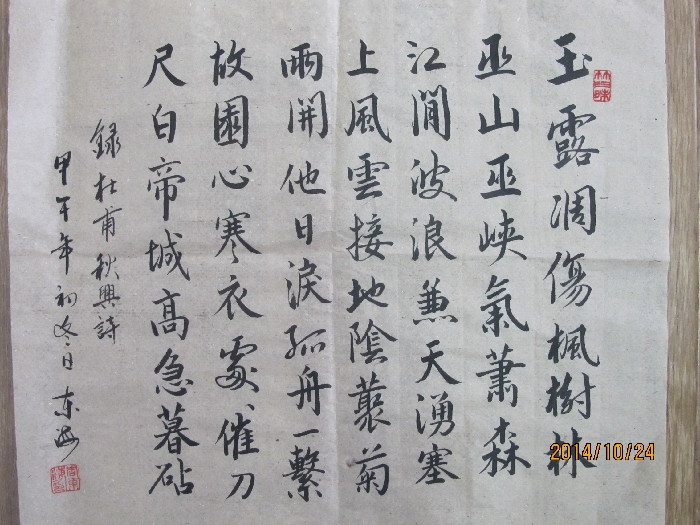 玉露凋傷楓樹林
巫山巫峽氣蕭森
江間波浪兼天湧塞
上風雲接地陰叢菊
兩開他日淚孤舟一繫
故園心寒衣處、催刀
尺白帝城高急暮砧
録杜甫秋興詩
甲午年初冬日东海
2014/10/24